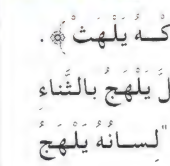 كْـهُ يَلْهَثْ﴾ .
لَّ يَلْهَجُ بالثَّناءِ
"لِسـانُهُ يَلْهَجُ